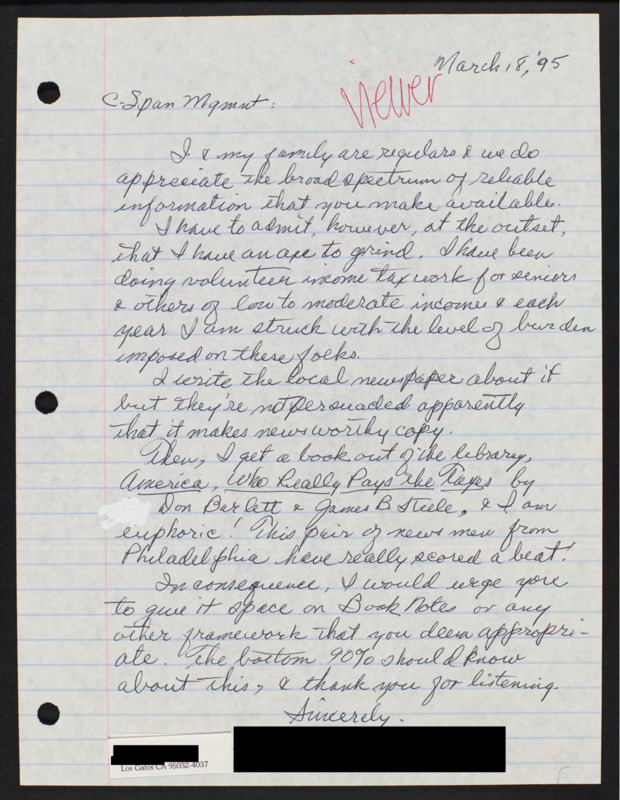 March 18, '95
Viewer
C-Span Mgmnt:
I & my family are regulars & we do
appreciate the broad spectrum of reliable
information that you make available.
I have to admit, however, at the outset,
that I have an axe to grind. I have been
doing volunteer income tax work for seniors
& others of low to moderate incomes & each
year I am struck with the level of burden
imposed on these folks.
I write the local newspaper about it
but they're not persuaded apparently
that it makes newsworthy copy.
Then, I get a book out of the library,
America, Who Really Pays the Taxes by
Don Barlett & James B. Steele, & I am
euphoric! This pair of news men from
Philadelphia have really scored a beat!
In consequence, I would urge you
to give it space on Book Notes or any
other framework that you deem appropri-
ate. The bottom 90% should know
about this, & thank you for listening.
Sincerely.
Los Gatos CA 95032-4037